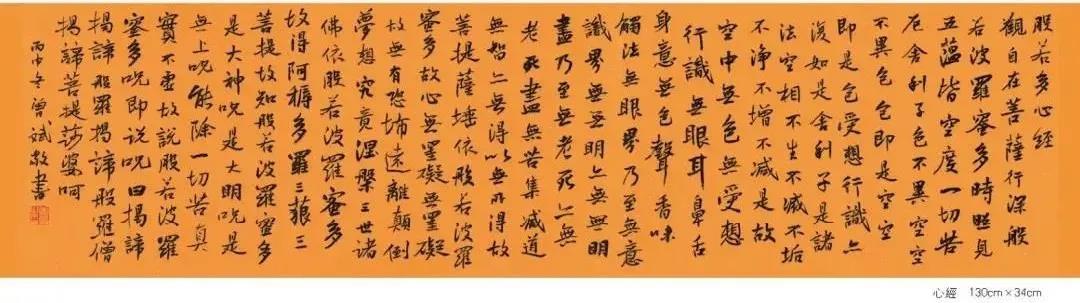 般若多心經
觀自在菩薩行深般
若波羅蜜多時照見
五蘊皆空度一切苦
厄舍利子色不異空空
不異色色即是空空
即是色受想行識亦
復如是舍利子是諸
法空相不生不滅不垢
不淨不增不減是故
空中無色無受想
行識無眼耳鼻舌
身意無色聲香味
觸法無眼界乃至無意
識界無無明亦無無明
盡乃至無老死亦無
老死盡無苦集滅道
無智亦無得以無所得故
菩提薩埵依般若波羅
蜜多故心無罣礙無罣礙
故無有恐怖遠離顛倒
夢想究竟涅槃三世諸
佛依般若波羅蜜多
故得阿耨多羅三藐三
菩提故知般若波羅蜜多
是大神呪是大明呪是
無上呪能除一切苦真
實不虛故說般若波羅
蜜多呪即說呪曰揭諦
揭諦般羅揭諦般羅僧
揭諦菩提莎婆呵
丙申冬曾斌敬書
心經 130cm×34cm